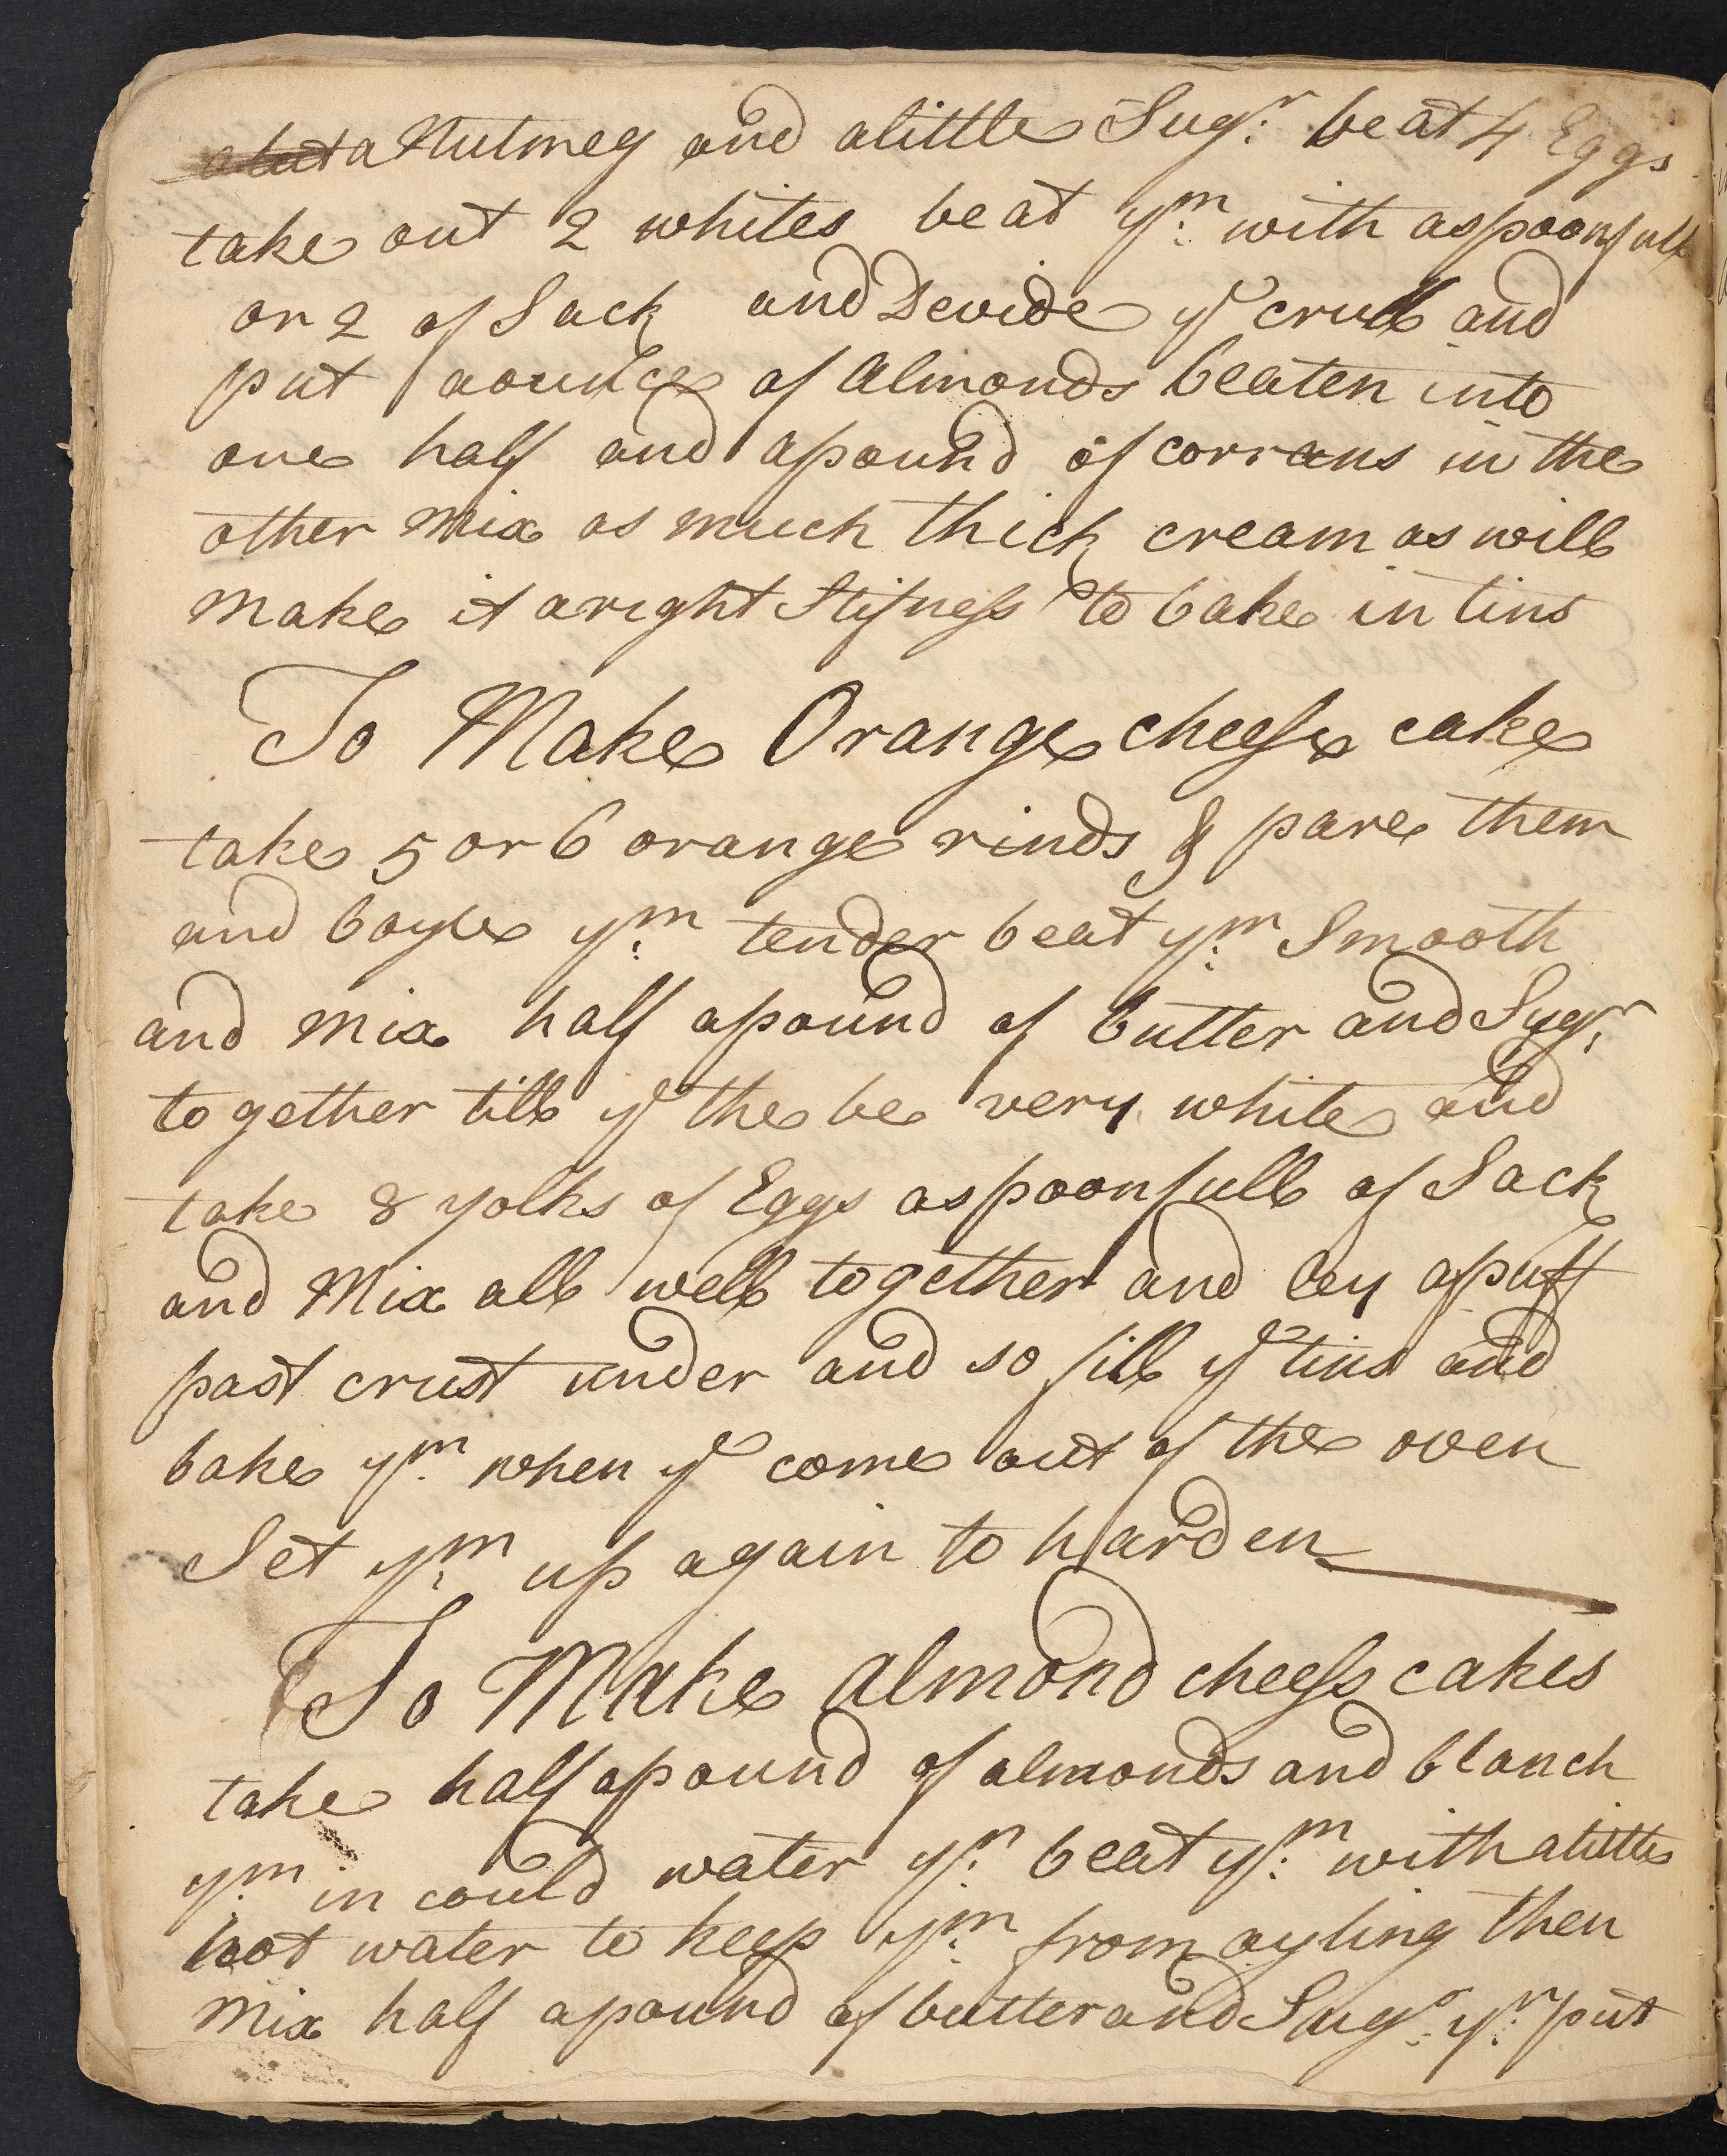 a Nutmeg and alittle Sugr. beat 4 Eggs
take out 2 whites beat ym. with aspoonfull
or 2 of Sack and Devide ye crud and
put aounce of Almonds beaten into
one half and apound of corrans in the
other mix as much thick cream as will
make it aright Stifness to bake in tins
To Make Orange cheese cake
take 5 or 6 orange rinds & pare them
and boyle ym. tender beat ym. Smooth
and mix half apound of butter and Sugr.
together till ye the be very white and
take 8 yolks of Eggs aspoonfull of Sack
and Mix all well together and ley apuff
past crust under and so fill ye tins and
bake ym. when ye come out of the oven
Set ym. up again to harden
To Make almond cheess cakes
take half apound of almonds and blanch
ym. in could water yn. beat ym. with alittle
hot water to keep ym. from oyling then
mix half apound of butter and Sugr. yn. put